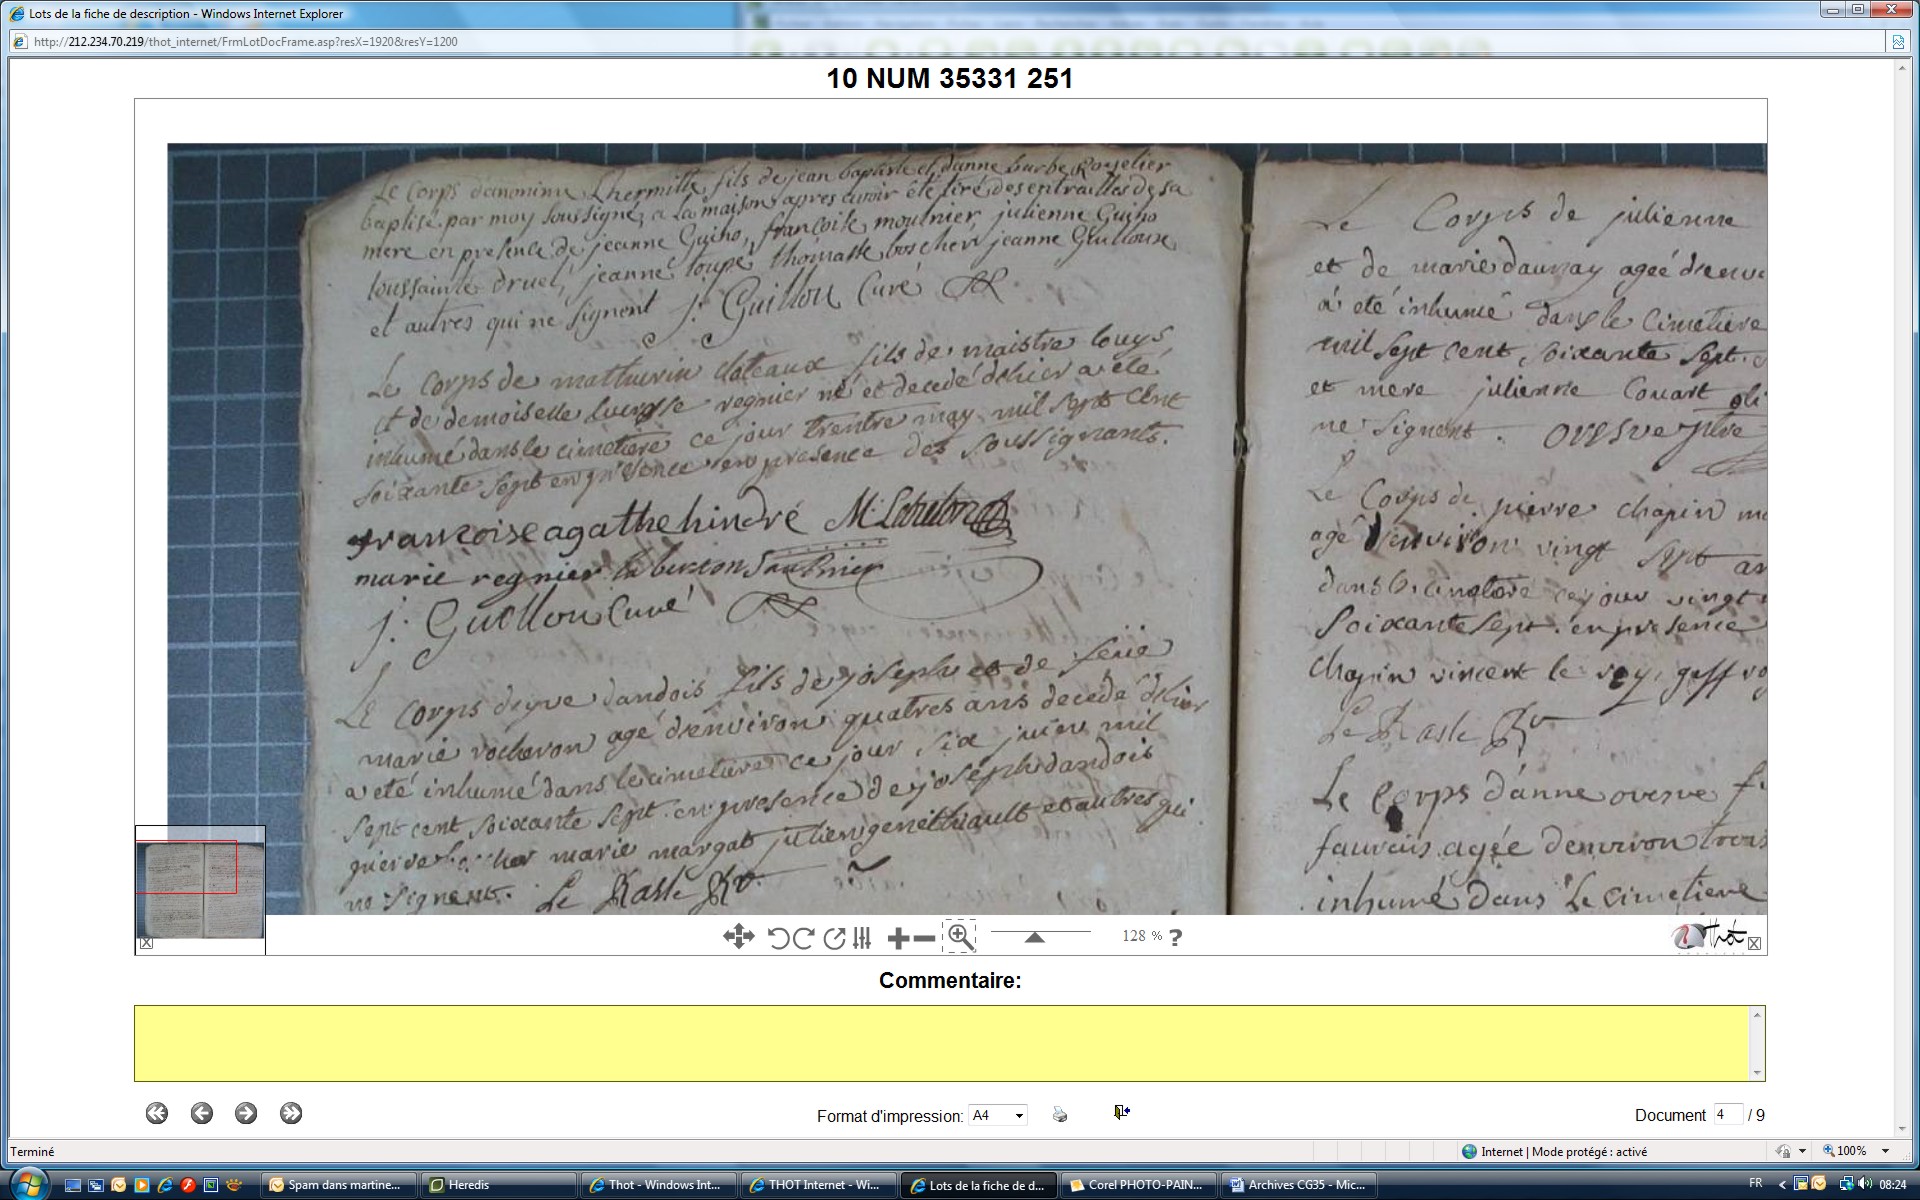 Lots de la fiche de description - Windows Internet Explorer
http://212.234.70.219/thot_internet/FrmLotDocFrame.asp?resX=1920&resY=1200
10 NUM 35331 251
Le Corps danonime Lhermitte fils de jean baptiste et danne barbe
baptisé par moy soussigné a la maison apres avoir été tiré des entrailles de sa
mere en presence de jeanne Guiho, françoise moulnier julienne Guiho
toussainte druel, jeanne toupé thomasse boscher jeanne Guilloux
et autres qui ne signent j: Guillou Curé
Le corps de mathurin fils de maistre louys
et de demoiselle regnier né et decedé d'hier a été
inhumé dans le cimetiere ce jour trentre may mil sept cent
soixante sept en presence en presence des soussignants.
francoise agathe hindré
marie regnier
j: Guillou Curé
Le corps dyve dandois fils de joseph et de
marie rocheron agé denviron quatres ans decedé d'hier
a eté inhumé dans le cimetiere ce jour six juien mil
sept cent soixante sept. en presence de joseph dandois
marie margat julien genethiault et autres qui
ne signent. Le Rasle
Le Corps de julienne
et de marie daunay ageé
a été inhumé dans le cimetiere
mil sept cent soixante sept.
et mere julienne Couart
ne signent.
Le Corps de pierre chapin
agé denviron vingt sept
dans le cimetiere ce jour vingt
Soixante sept. en presence
chapin vincent le roy,
Le Rasle
Le Corps d'anne overve
fauvais agée denviron trois
inhumé dans le cimetiere
128 % ?
Thot
Commentaire:
Format d'impression: A4
Document 4 / 9
Terminé
Internet | Mode protégé : activé
100%
Spam dans martine...
Heredis
Thot - Windows Int...
THOT Internet - Wi...
Lots de la fiche de d...
Corel PHOTO-PAIN...
Archives CG35 - Mic...
FR
08:24